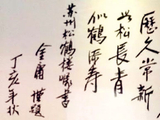 歷久常新
此松長青
似鶴添壽
蘇州松鶴樓囑書
金庸 撰題
丁亥年秋